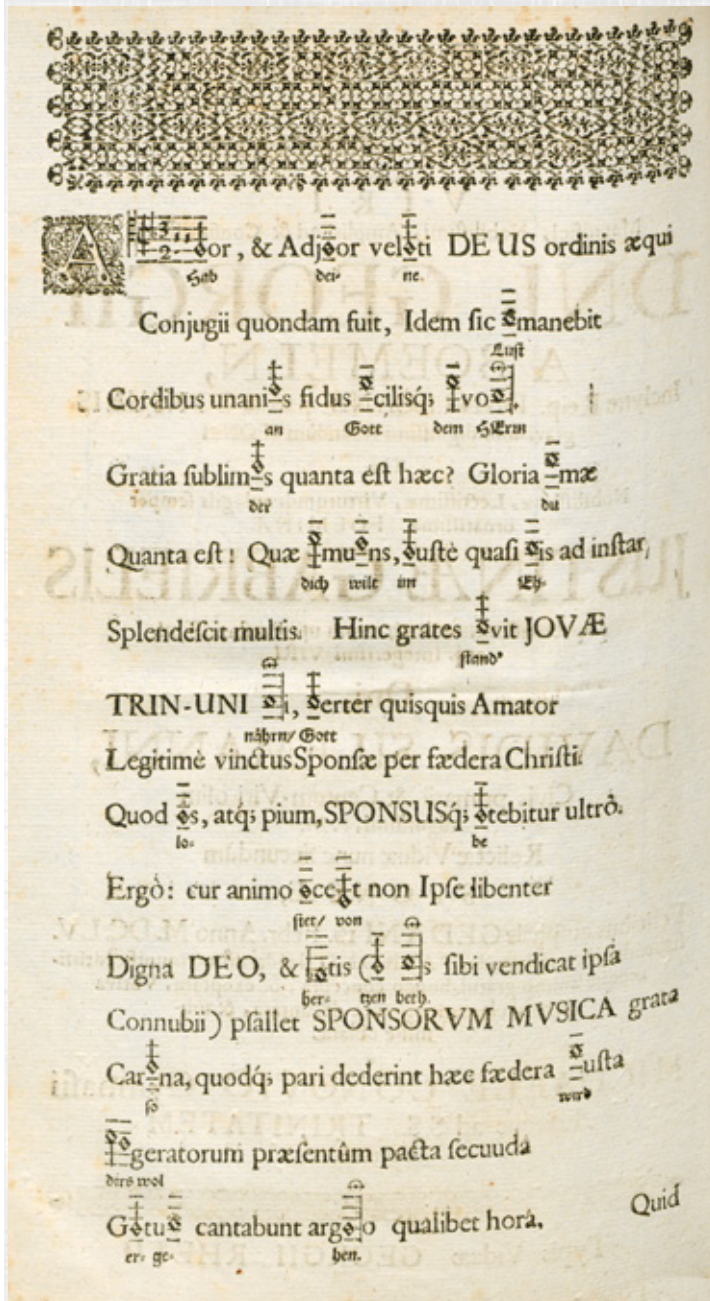 A or, & Adj or vel ti DEUS ordinis æqui
Hab dei- ne.
Conjugii quondam fuit, Idem ſic manebit
Luſt
Cordibus unani s fidus ciliſq; vo .
an Gott dem HErrn
Gratia ſublim s quanta eſt hæc? Gloria mæ
der du
Quanta eſt! Quæ mu ns, uſtè quaſi is ad inſtar,
dich wilt im Eh-
Splendeſcit multis. Hinc grates vit JOVÆ
ſtand'
TRIN-UNI i, erter quisquis Amator
nähren/ Gott
Legitimè vinctus Sponſæ per fædera Chriſti.
Quod s, atq; pium, SPONSUSq; tebitur ultrò.
lo- be
Ergò: cur animo ce t non Ipſe libenter
ſtet/ von
Digna DEO, & tis ( s ſibi vendicat ipſa
her- tzen
Connubii) pſallet SPONSORVM MVSICA grata
Car na, quodq; pari dederint hæc fædera uſta
ſo wird
geratorum præſentûm pacta ſecuuda
dirs wol
G tu cantabunt arg o qualibet horâ.
er- ge- hen.
Quid